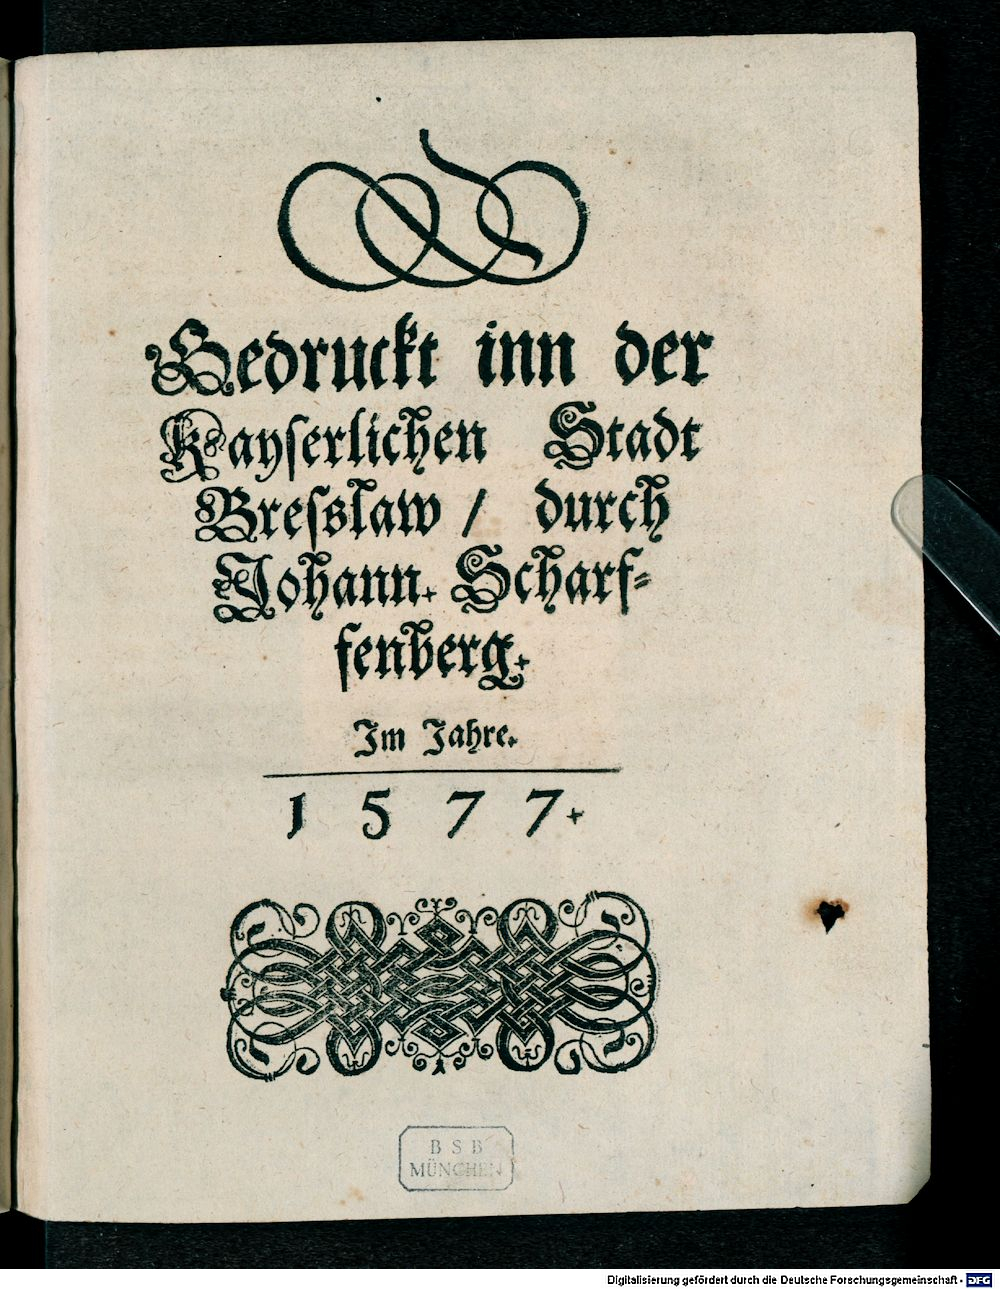 Gedruckt inn der
Kayserlichen Stadt
Breſslaw / durch
Johann. Scharf⸗
fenberg.
Im Jahre.
1 5 7 7.
B S B
MÜNCHEN
Digitalisierung gefördert durch die Deutsche Forschungsgemeinschaft - DFG